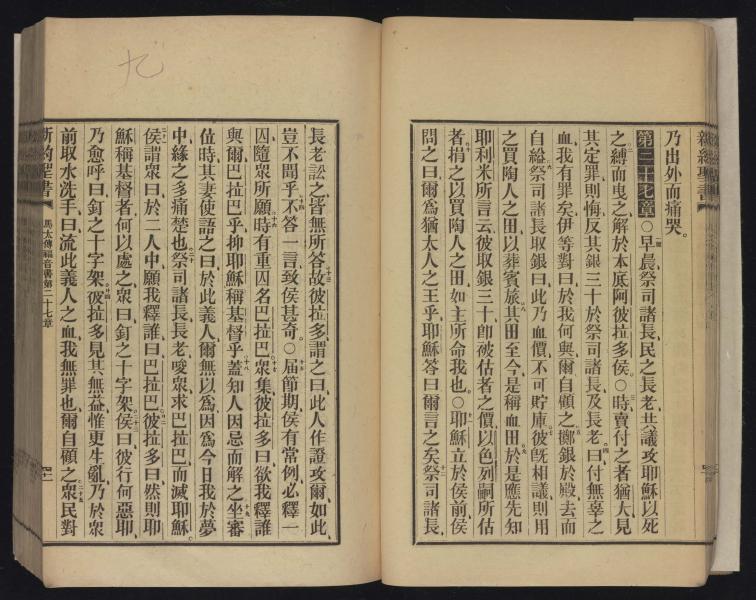 新約聖書
乃出外而痛哭。
第二十七章○早晨祭司諸長民之長老共議攻耶穌以死
之縛而曳之解於本底阿彼拉多侯○時賣付之者猶大見
其定罪則悔反其銀三十於祭司諸長及長老曰付無辜之
血我有罪矣伊等對曰於我何與爾自顧之擲銀於殿去而
自縊祭司諸長取銀曰此乃血價不可貯庫彼既相議則用
之買陶人之田以葬賓旅其田至今是稱血田於是應先知
耶利米所言云彼取銀三十即被估者之價以色列嗣所估
者捐之以買陶人之田如主所命我也○耶穌立於侯前侯
問之曰爾為猶太人之王乎耶穌答曰爾言之矣祭司諸長
九
長老訟之皆無所答故彼拉多謂之曰此人作證攻爾如此
豈不聞乎不答一言致侯甚奇○屆節期侯有常例必釋一
囚隨眾所願時有重囚名巴拉巴眾集彼拉多曰欲我釋誰
與爾巴拉巴乎抑耶穌稱基督乎蓋知人因忌而解之坐審
位時其妻使語之曰於此義人爾無以為因為今日我於夢
中緣之多痛楚也祭司諸長長老唆眾求巴拉巴而滅耶穌
侯謂眾曰於二人中願我釋誰曰巴拉巴彼拉多曰然則耶
穌稱基督者何以處之眾曰釘之十字架侯曰彼行何惡耶
乃愈呼曰釘之十字架彼拉多見其無益惟更生亂乃於眾
前取水洗手曰流此義人之血我無罪也爾自顧之眾民對
新約聖書 馬太傳福音書第二十七章